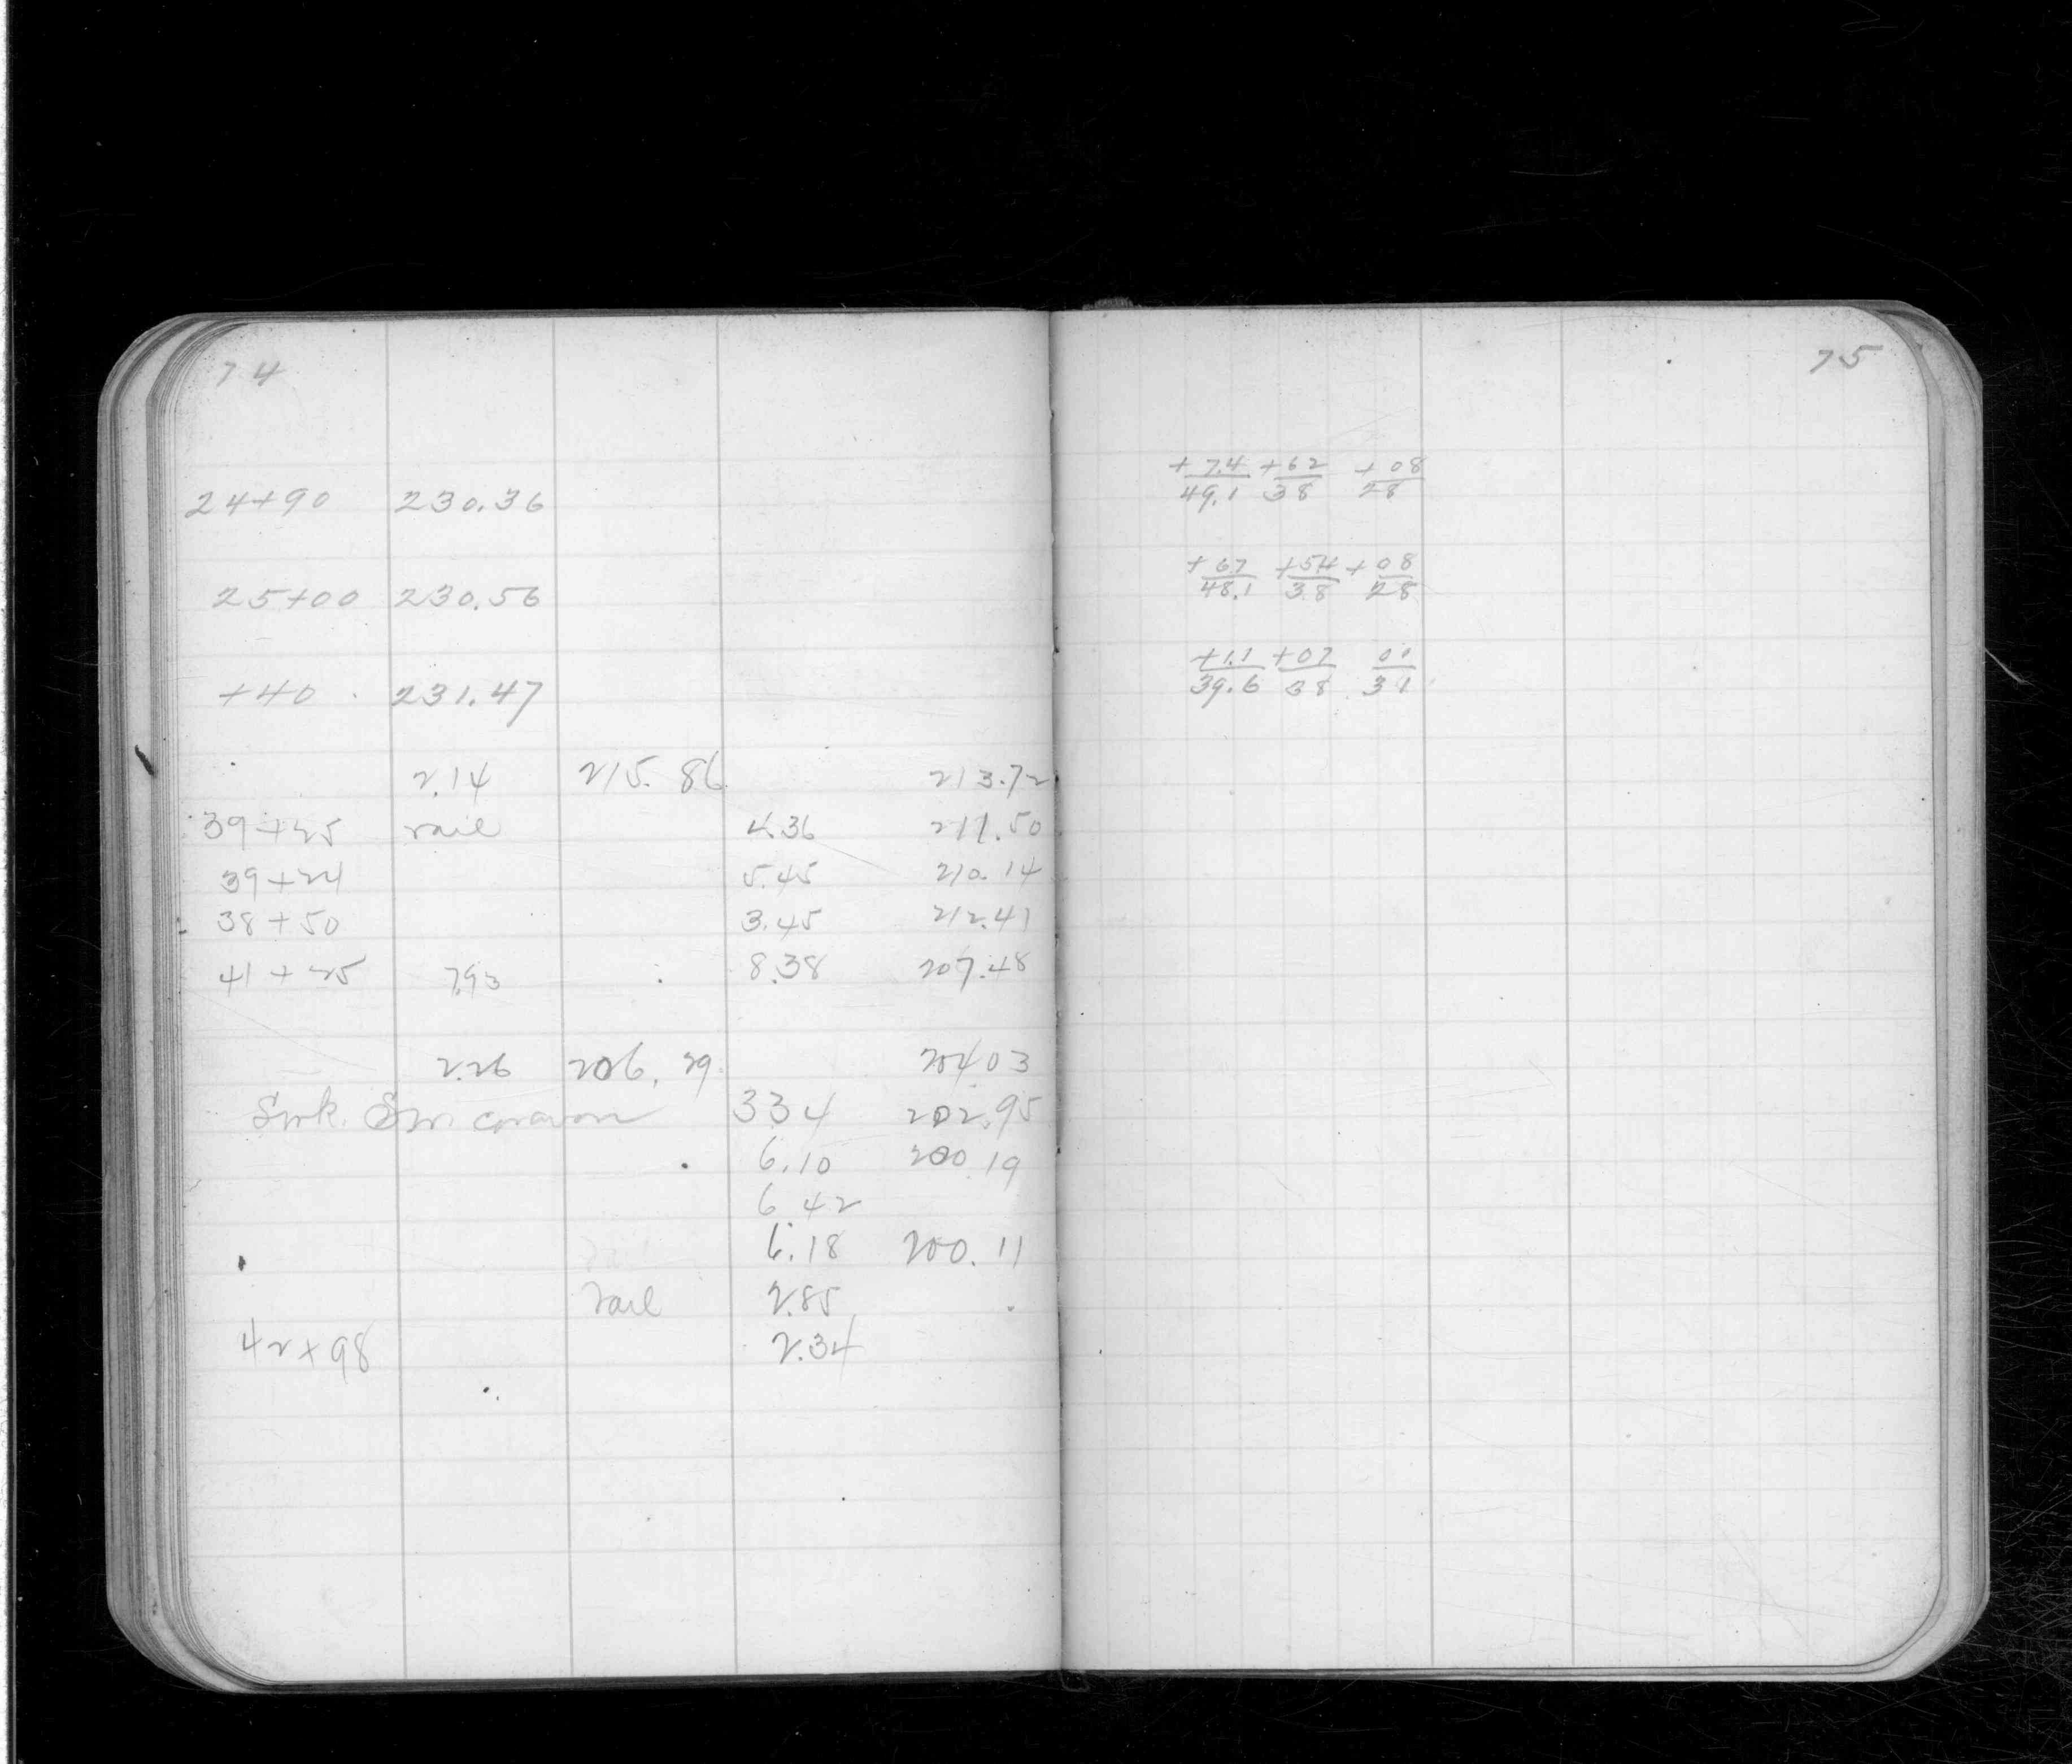 74
24+90 230.36
25+00 230.56
+40 231.47
2.14 215.86 213.72
39+25 rail 4.36 211.50
39+24 5.45 210.14
38+50 3.45 212.41
41+25 7.93 8.38 207.48
2.26 206.29 204 03
334 202.95
6.10 200 19
6 42
6.18 200.11
rail 2.85
42+98 2.34
75
+7.4/49.1 +62/38 +08/28
+67/48.1 +54/38 +08/28
+1.1/39.6 +07/38 00/31